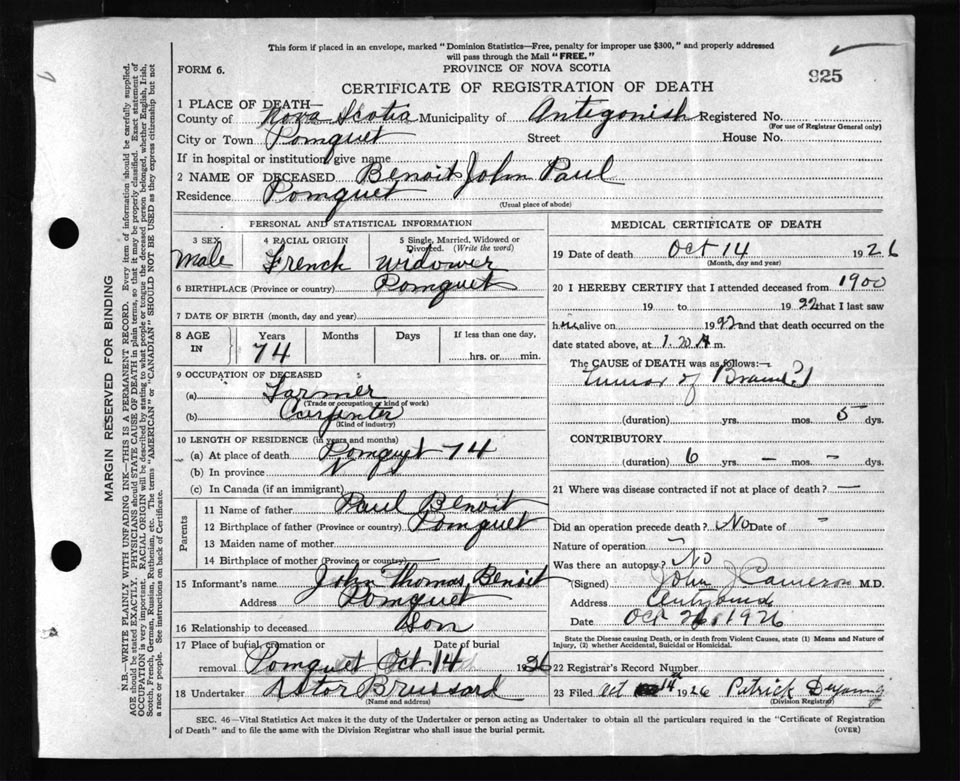 This form if placed in an envelope, marked "Dominion Statistics—Free, penalty for improper use $300," and properly addressed
will pass through the Mail "FREE."
FORM 6.
PROVINCE OF NOVA SCOTIA
925
CERTIFICATE OF REGISTRATION OF DEATH
1 PLACE OF DEATH—
County of Nova Scotia Municipality of Antigonish Registered No.
(For use of Registrar General only)
City or Town Pomquet Street House No.
If in hospital or institution, give name
2 NAME OF DECEASED Benoit John Paul
Residence Pomquet
(Usual place of abode)
PERSONAL AND STATISTICAL INFORMATION
3 SEX 4 RACIAL ORIGIN 5 Single, Married, Widowed or
Divorced. (Write the word)
Male French Widower
6 BIRTHPLACE (Province or country) Pomquet
7 DATE OF BIRTH (month, day and year)
8 AGE IN Years Months Days If less than one day,
74 hrs. or min.
9 OCCUPATION OF DECEASED
(a) Farmer
(Trade or occupation or kind of work)
(b) Carpenter
(Kind of industry)
10 LENGTH OF RESIDENCE (in years and months)
(a) At place of death Pomquet 74
(b) In province
(c) In Canada (if an immigrant)
Parents
11 Name of father Paul Benoit
12 Birthplace of father (Province or country) Pomquet
13 Maiden name of mother
14 Birthplace of mother (Province or country)
15 Informant's name John Thomas Benoit
Address Pomquet
16 Relationship to deceased Son
17 Place of burial, cremation or removal Date of burial
Pomquet Oct 14 1926
18 Undertaker Brussard
(Name and address)
MEDICAL CERTIFICATE OF DEATH
19 Date of death Oct 14 1926
(Month, day and year)
20 I HEREBY CERTIFY that I attended deceased from 1900
19 to 1922 that I last saw
h alive on 1922 and that death occurred on
date stated above, at 1.20 A m.
The CAUSE of DEATH was as follows:—
Tumor of
(duration) yrs. mos. 5 dys.
CONTRIBUTORY
(duration) 6 yrs. – mos. – dys.
21 Where was disease contracted if not at place of death? —
Did an operation precede death? No Date of –
Nature of operation –
Was there an autopsy? No
(Signed) John J Cameron M.D.
Address
Date Oct 1926
State the Disease causing Death, or in death from Violent Causes, state (1) Means and Nature of
Injury, (2) whether Accidental, Suicidal or Homicidal.
22 Registrar's Record Number
23 Filed Oct 14th 1926 Patrick Deyoung
(Division Registrar)
SEC. 46—Vital Statistics Act makes it the duty of the Undertaker or person acting as Undertaker to obtain all the particulars required in the "Certificate of Registration
of Death" and to file the same with the Division Registrar who shall issue the burial permit.
(OVER)
MARGIN RESERVED FOR BINDING
N.B.—WRITE PLAINLY WITH UNFADING INK—THIS IS A PERMANENT RECORD. Every item of information should be carefully supplied.
AGE should be stated EXACTLY. PHYSICIANS should STATE CAUSE OF DEATH in plain terms, so that it may be properly classified. Exact statement of
OCCUPATION is very important. RACIAL ORIGIN will be described by stating to what people or tongue the deceased person belonged, whether English, Irish,
Scotch, French, German, Russian, Ruthenian, etc. The terms "AMERICAN" or "CANADIAN" SHOULD NOT BE USED as they express citizenship but not
a race or people. See instructions on back of Certificate.